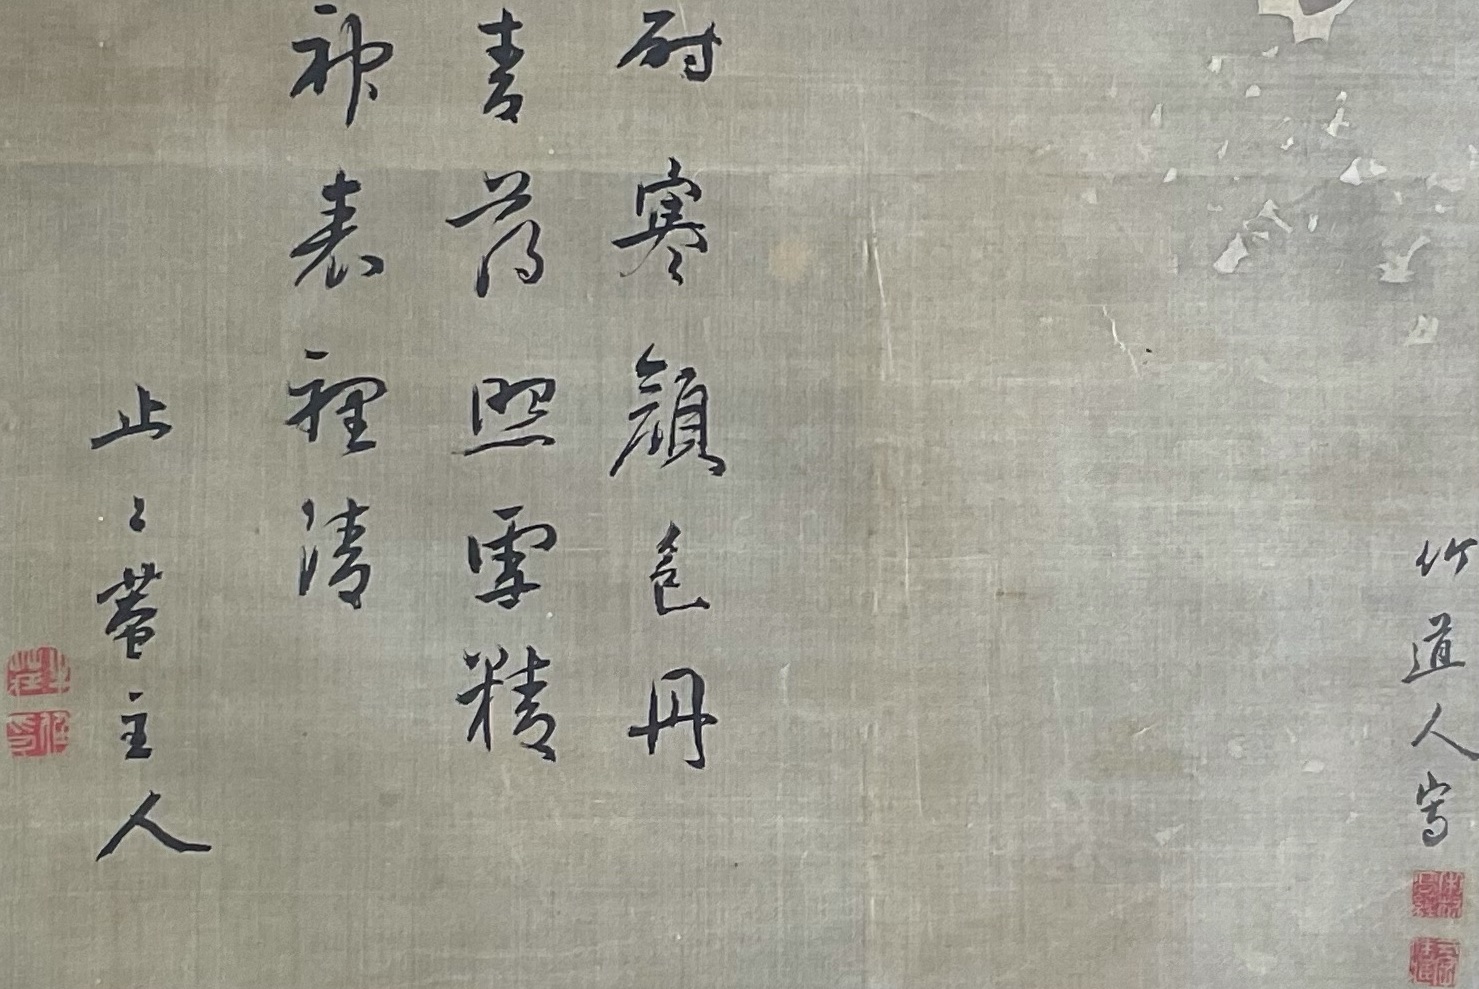 竹道人寫
耐寒顔色丹
青薄照雪精
神表裡清
止々菴主人